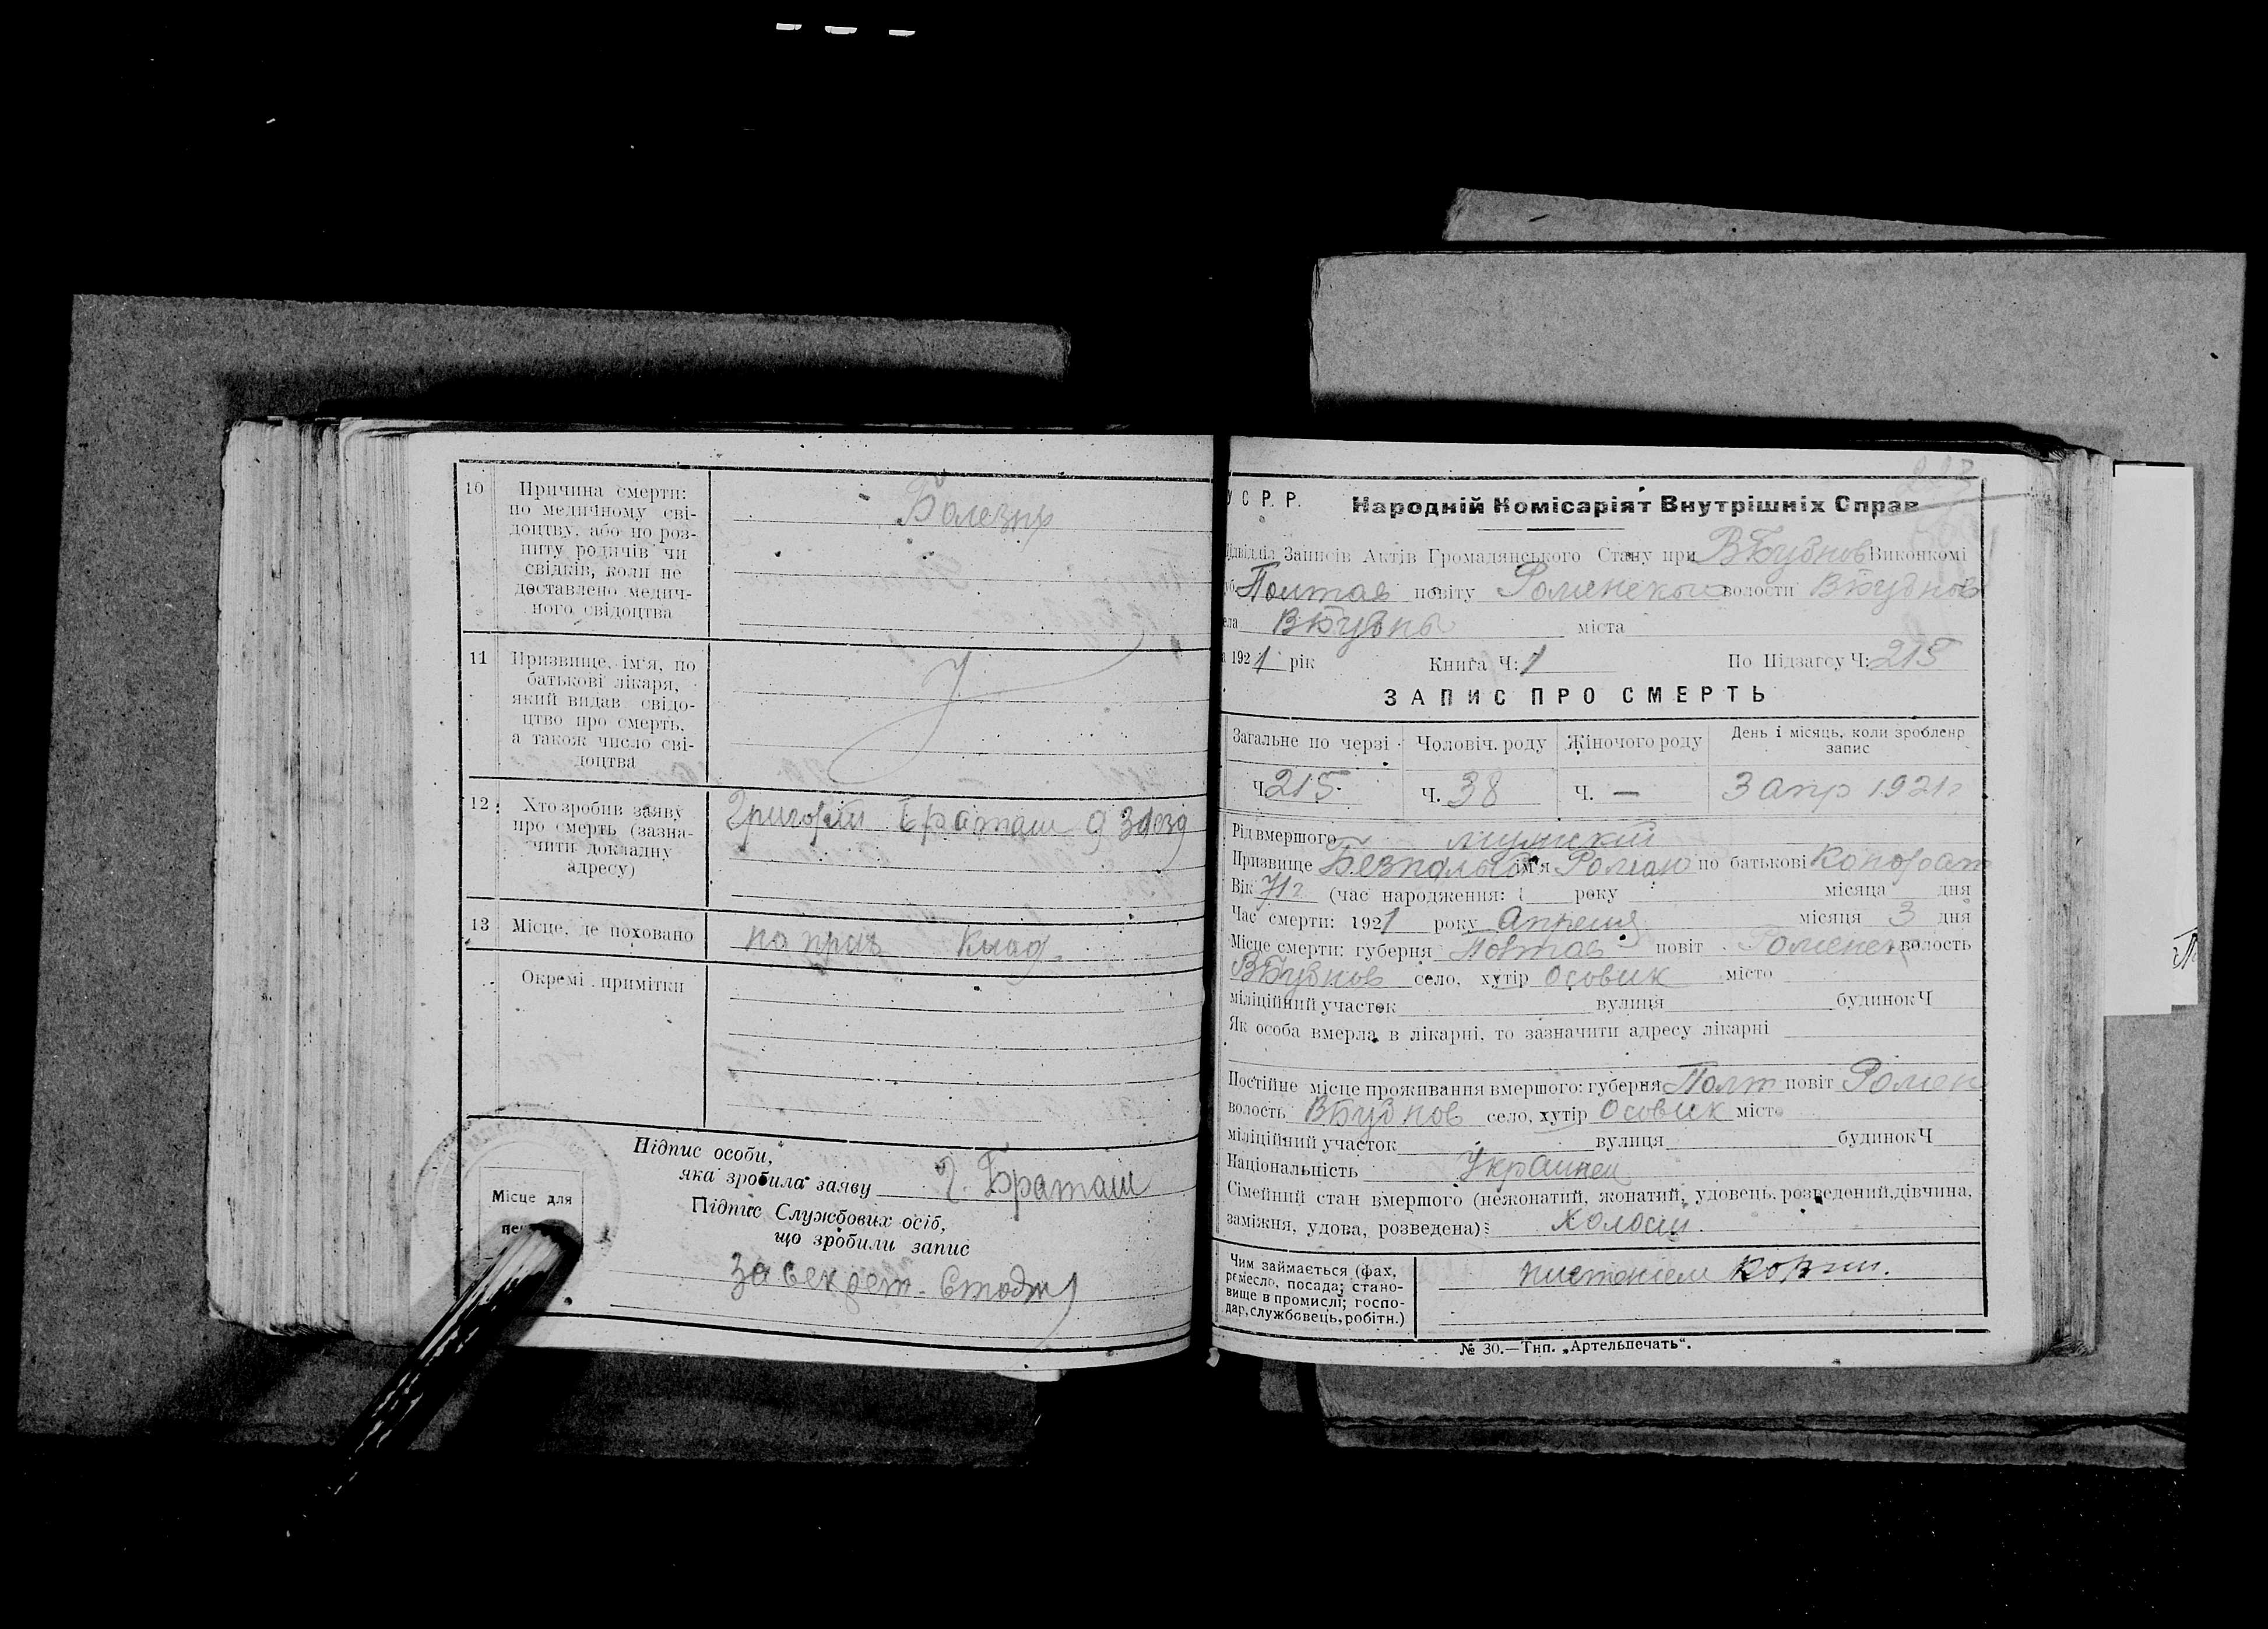 10 Причина смерти: Болезнь
по медичному сві-
доцтву, або по роз-
питу родичів чи
свідків, коли не
доставлено медич-
ного свідоцтва
11 Призвище, ім'я, по
батькові лікаря,
який видав свідо-
цтво про смерть,
а також число сві-
доцтва
12 Хто зробив заяву Григорий Браташ
про смерть (зазна-
чити докладну
адресу)
13 Місце, де поховано на прих клад.
Окремі примітки
Підпис особи,
яка зробила заяву Г. Браташ
Підпис Службових осіб,
що зробили запис
За секрет.
Місце для
У С Р. Р. Народній Комісаріят Внутрішніх Справ
Підвідділ Записів Актів Громадянського Стану при ВБубнов Виконкомі
Полтав повіту Роменской волости ВБубнов
села ВБубны міста
1921 рік Книга Ч: 1 По Підзагсу Ч: 215
ЗАПИС ПРО СМЕРТЬ
Загальне по черзі Чоловіч. роду Жіночого роду День і місяць, коли зроблено
запис
Ч 215. Ч. 38 Ч. — 3 апр 1921г
Рід вмершого мужский
Призвище Безпалый ім'я Роман по батькові
Вік 71г (час народження: 1 року місяца дня
Час смерти: 1921 року Апреля місяця 3 дня
Місце смерти: губерня Полтав повіт Роменск волость
ВБубнов село, хутір Осовик місто
міліційний участок вулиця будинок Ч
Як особа вмерла в лікарні, то зазначити адресу лікарні
Постійне місце проживання вмершого: губерня Полт повіт Ромен
волость ВБубнов село, хутір Осовик місто
міліційний участок вулиця будинок Ч
Національність Украинец
Сімейний стан вмершого (нежонатий, жонатий, удовець, розведений, дівчина,
заміжня, удова, розведена): Холост.
Чим займається (фах,
ремесло, посада; стано-
вище в промислі; госпо-
дар, службовець, робітн.)
№ 30.—Тип. „Артельпечать“.